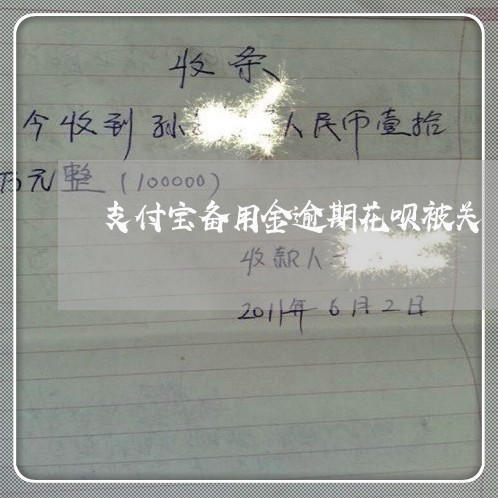 收条
今收到孙 人民币壹拾
万元整(100000)
支付宝备用金逾期花呗被关
收款人
2011年6月2日